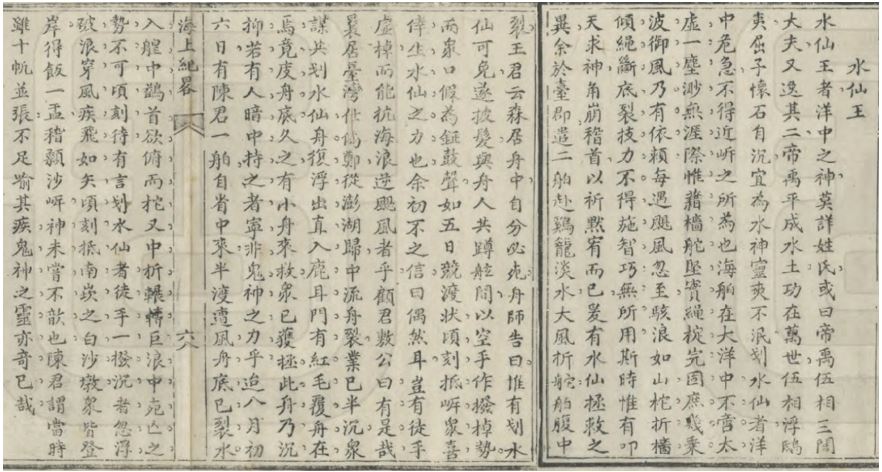 水仙王
水仙王者洋中之神莫詳姓氏或曰帝禹伍相三閭
大夫又逸其二帝禹平成水土功在萬世伍相浮鴟
夷屈子懷石自沉宜為水神靈爽不泯划水仙者洋
中危急不得近岍之所為也海舶在大洋中不啻太
虛一塵渺無涯際惟藉檣舵堅實繩椗完固庶幾乘
波御風乃有依賴每遇颶風忽至駭浪如山柁折檣
傾繩斷底裂技力不得施智巧無所用斯時惟有叩
天求神角崩稽首以祈默宥而已爰有水仙拯救之
異余於臺郡遣二舶赴鷄籠淡水大風折舵舶腹中
裂王君云森居舟中自分必死舟師告曰惟有划水
仙可免遂披髮與舟人共蹲舷間以空手作撥棹勢
而衆口假為鉦鼓聲如五日競渡状頃刻抵岍衆喜
倖生水仙之力也余初不之信曰偶然耳豈有徒手
虛棹而能抗海浪逆颶風者乎顧君敷公曰有是哉
曩居臺灣仕偽鄭從澎湖歸中流舟裂業已半沉衆
謀共划水仙舟復浮出直入鹿耳門有紅毛覆舟在
焉竟度舟底久之有小舟來救衆已獲拯此舟乃沉
抑若有人暗中持之者寧非鬼神之力乎迨八月初
六日有陳君一舶自省中來半渡遭風舟底已裂水
海上紀畧 六
入艎中鷁首欲俯而柁又中折輾轉巨浪中死亡之
勢不可頃刻待有言划水仙者徒手一撥沉者忽浮
破浪穿風疾飛如矢頃刻抵南崁之白沙墩衆皆登
岸得飯一盂稽顙沙岍神未嘗不歆也陳君謂當時
雖十帆並張不足喻其疾鬼神之靈亦奇已哉